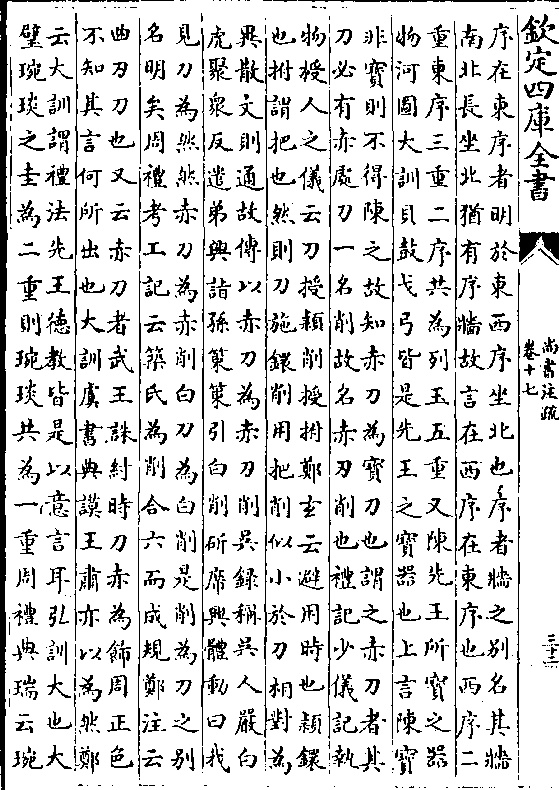 欽定四庫全書
尚書注疏
卷十七
三十二
序在東序者明於東西序坐北也序者牆之別名其牆
南北長坐北猶有序牆故言在西序在東序也西序二
重東序三重二序共為列玉五重又陳先王所寶之器
物河圖大訓貝鼓戈弓皆是先王之寶器也上言陳寶
非寶則不得陳之故知赤刀為寶刀也謂之赤刀者其
刀必有赤處刀一名削故名赤刃削也禮記少儀記執
物授人之儀云刀授穎削授拊鄭玄云避用時也穎鐶
也拊謂把也然則刀施鐶削用把削似小於刀相對為
異散文則通故傳以赤刀為赤刃削吳錄稱吳人嚴白
虎聚衆反遣弟興詣孫策策引白削斫席興體動曰我
見刀為然然赤刀為赤削白刀為白削是削為刀之別
名明矣周禮考工記云築氏為削合六而成規鄭注云
曲刃刀也又云赤刀者武王誅紂時刀赤為飾周正色
不知其言何所出也大訓虞書典謨王肅亦以為然鄭
云大訓謂禮法先王德教皆是以意言耳弘訓大也大
璧琬琰之圭為二重則琬琰共為一重周禮典瑞云琬